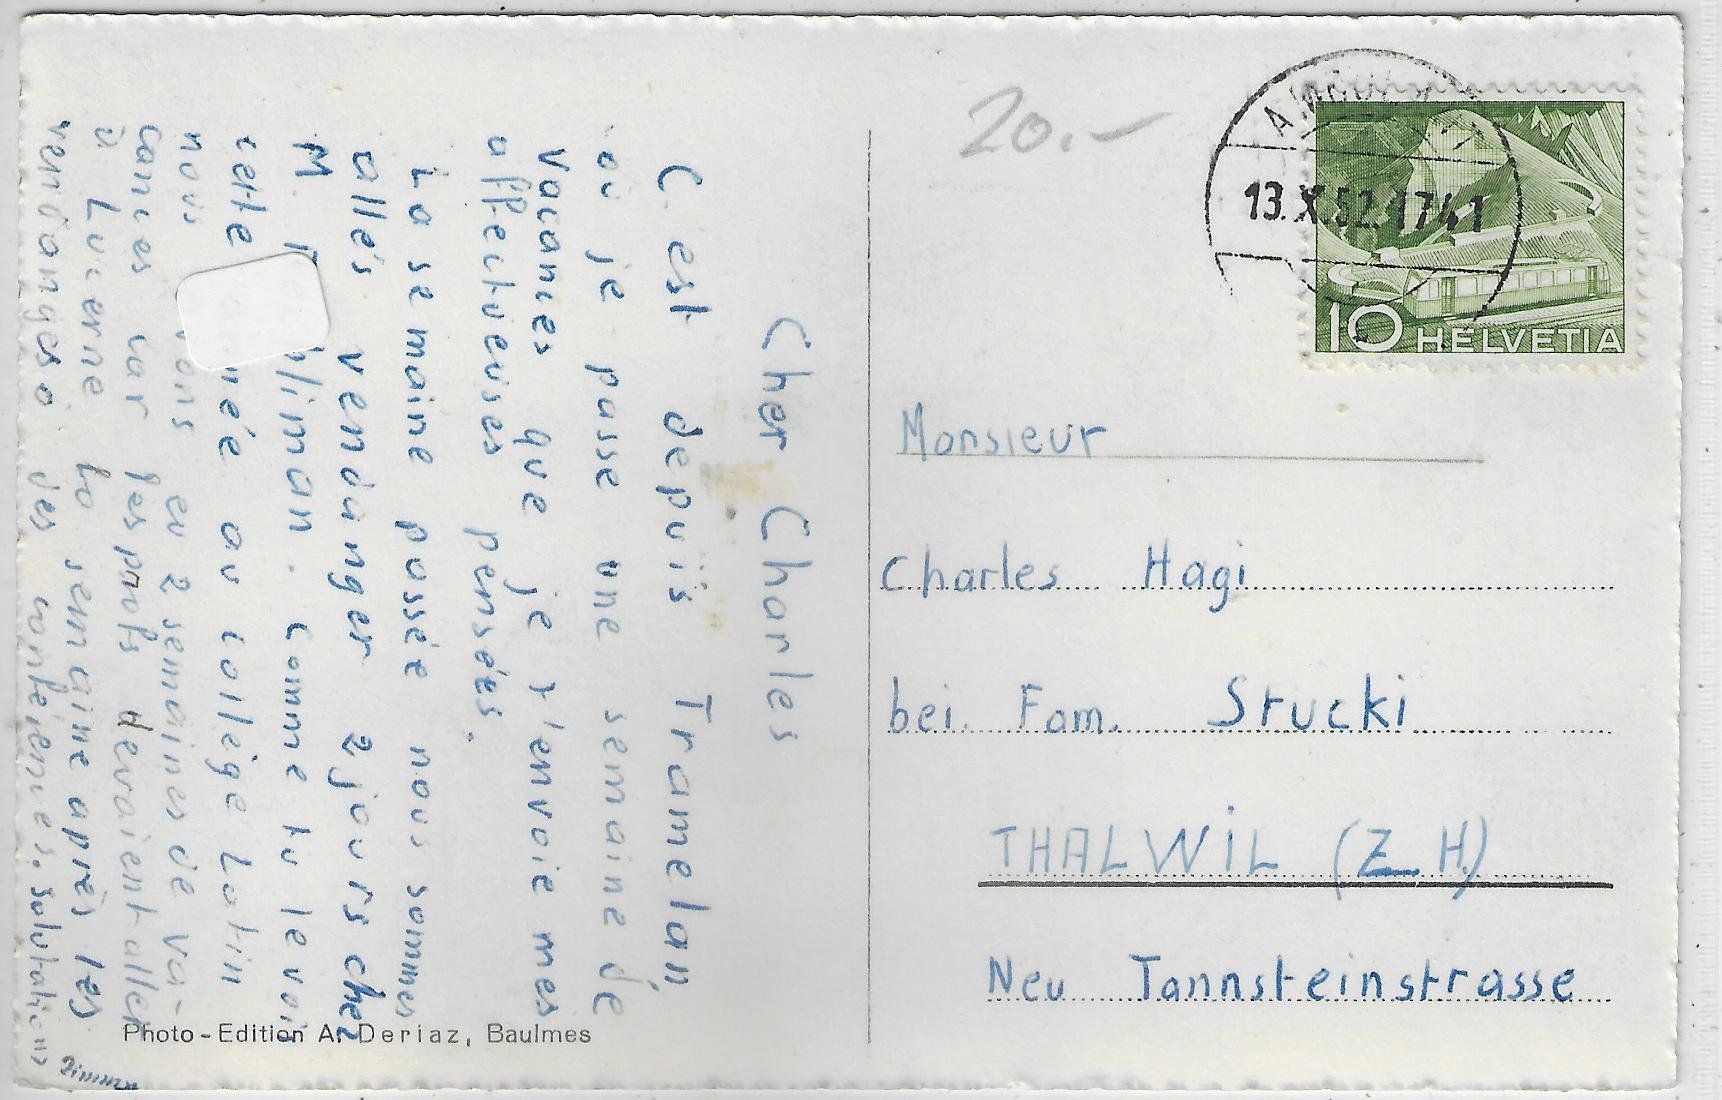 Cher Charles
C'est depuis Tramelan
où je passe une semaine de
vacances que je t'envoie mes
affectueuses pensées.
La semaine passée nous sommes
allés vendanger 2 jours chez
M. bliman. Comme tu le vois
cette née au collège Latin
nous vons eu 2 semaines de va-
cances car les profs devaient aller
à Lucerne la semaine après les
vendanges à des conférences. Salutations
20.-
13.X.52.17
10 HELVETIA
Monsieur
Charles Hagi
bei. Fam. Stucki
THALWIL (Z.H.)
Neu Tannsteinstrasse
Photo-Edition A. Deriaz, Baulmes